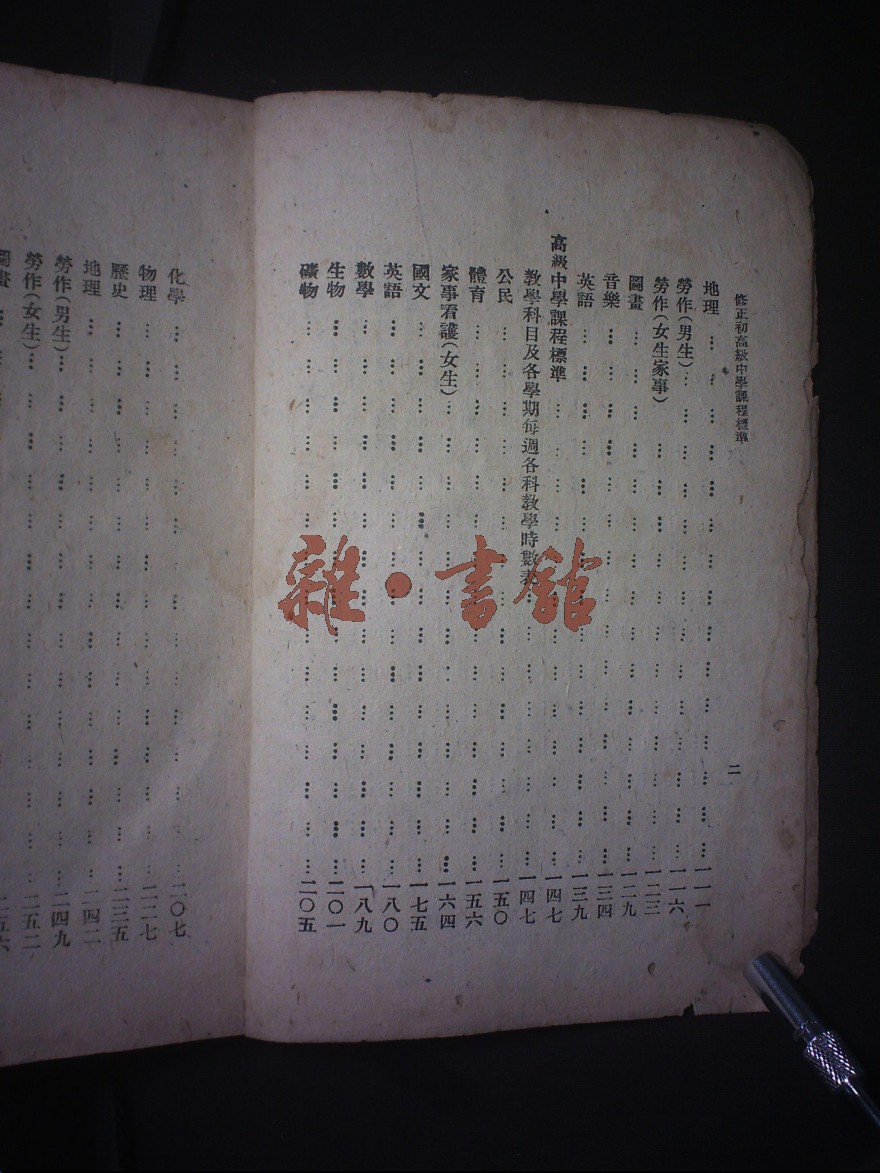 修正初高級中學課程標準
二
地理 一一一
勞作(男生) 一一六
勞作(女生家事) 一二三
圖畫 一二九
音樂 一三四
英語 一三九
高級中學課程標準 一四七
教學科目及各學期每週各科教學時數表 一四七
公民 一五〇
體育 一五六
家事看護(女生) 一六四
國文 一七五
英語 一八〇
數學 一八九
生物 二〇一
礦物 二〇五
化學 二〇七
物理 二二七
歷史 二三五
地理 二四二
勞作(男生) 二四九
勞作(女生) 二五二
圖畫 二五六
雜·書館